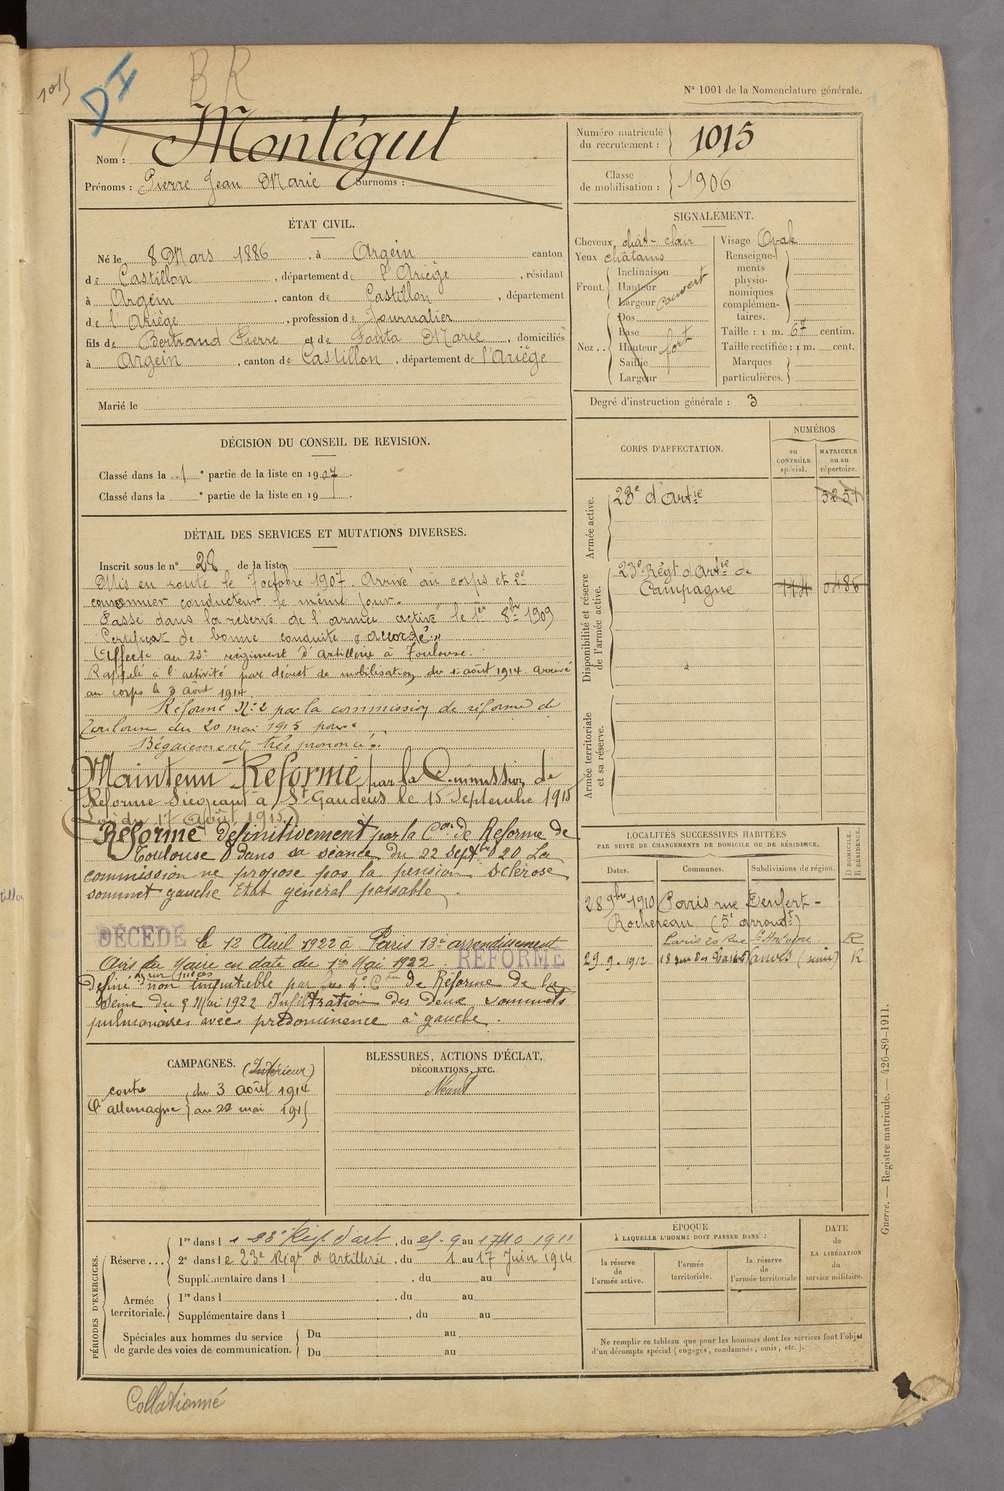 1015
DI
BR
N° 1001 de la Nomenclature générale.
Nom : Montégut
Prénoms : Pierre Jean Marie Surnoms :
Numéro matricule du recrutement : 1015
Classe de mobilisation : 1906
ÉTAT CIVIL.
Né le 8 Mars 1886, à Argein canton
de Castillon, département de l'Ariège, résidant
à Argein, canton de Castillon, département
de l'Ariège, profession de Journalier
fils de Bertrand Pierre et de Souta Marie, domiciliés
à Argein, canton de Castillon, département de l'Ariège
Marié le
SIGNALEMENT.
Cheveux chât-clair
Yeux châtains
Front. Inclinaison
Hauteur
Largeur
couvert
Nez... Dos
Base
Hauteur
Saillie
Largeur
fort
Visage Oval
Renseignements physionomiques complémentaires.
Taille : 1 m. 67 centim.
Taille rectifiée : 1 m. cent.
Marques particulières.
Degré d'instruction générale : 3
DÉCISION DU CONSEIL DE REVISION.
Classé dans la 1e partie de la liste en 1907.
Classé dans la e partie de la liste en 19 .
CORPS D'AFFECTATION.
NUMÉROS
au CONTRÔLE spécial.
MATRICULE ou au répertoire.
Armée active.
28e d'Artie 5257
Disponibilité et réserve de l'armée active.
23e Régt d'Artie de
Campagne
Armée territoriale et sa réserve.
DÉTAIL DES SERVICES ET MUTATIONS DIVERSES.
Inscrit sous le n° 28 de la liste
Mis en route le 7 octobre 1907. Arrivé au corps et 2e
canonnier conducteur le même jour.
Passé dans la réserve de l'armée active le 1er 8bre 1909
Certificat de bonne conduite "accordé"
Affecté au 23e régiment d'artillerie à Toulouse.
Rappelé à l'activité par décret de mobilisation du 1 août 1914 arrivé
au corps le 3 août 1914.
Réformé N°2 par la commission de réforme de
Toulouse du 20 mai 1915 pour
Bégaiement très prononcé.
Maintenu Réformé par la Commission de
Réforme Siégeant à St Gaudens le 15 Septembre 1915
(Loi du 17 Août 1915)
Réformé définitivement par la Con de Réforme de
Toulouse dans sa séance du 22 Septbre 1920 La
commission ne propose pas la pension sclérose
sommet gauche Etat général passable.
DÉCÉDÉ le 12 Avril 1922 à Paris 13e arrondissement
Avis du Maire en date du 1er Mai 1922. RÉFORMÉ
Défini sur pièces non imputable par la Con de Réforme de la
Seine du 9 Mai 1922 Infiltration des Deux sommets
pulmonaires avec prédominence à gauche.
LOCALITÉS SUCCESSIVES HABITÉES
PAR SUITE DE CHANGEMENTS DE DOMICILE OU DE RÉSIDENCE.
Dates. Communes. Subdivisions de région. D DOMICILE. R RÉSIDENCE.
28 9bre 1910 Paris rue Denfert-
Rochereau (5e arrondt)
R
29.9.1912 Vanves (Seine) R
CAMPAGNES. (Intérieur)
contre l'allemagne du 3 août 1914
au 22 mai 1915
BLESSURES, ACTIONS D'ÉCLAT, DÉCORATIONS, ETC.
Néant
PÉRIODES D'EXERCICES.
Réserve... 1re dans l e 23e Régt d'art, du 25.9 au 17 10 1911
2e dans l e 23e Régt d'Artillerie, du 1 au 17 Juin 1914
Supplémentaire dans l , du au
Armée territoriale. 1re dans l , du au
Supplémentaire dans l , du au
Spéciales aux hommes du service de garde des voies de communication. Du au
Du au
ÉPOQUE
À LAQUELLE L'HOMME DOIT PASSER DANS :
la réserve de l'armée active.
l'armée territoriale.
la réserve de l'armée territoriale
DATE de LA LIBÉRATION du service militaire.
Ne remplir ce tableau que pour les hommes dont les services font l'objet
d'un décompte spécial (engagés, condamnés, omis, etc.).
Guerre. — Registre matricule. — 426-89-1911.
Collationné